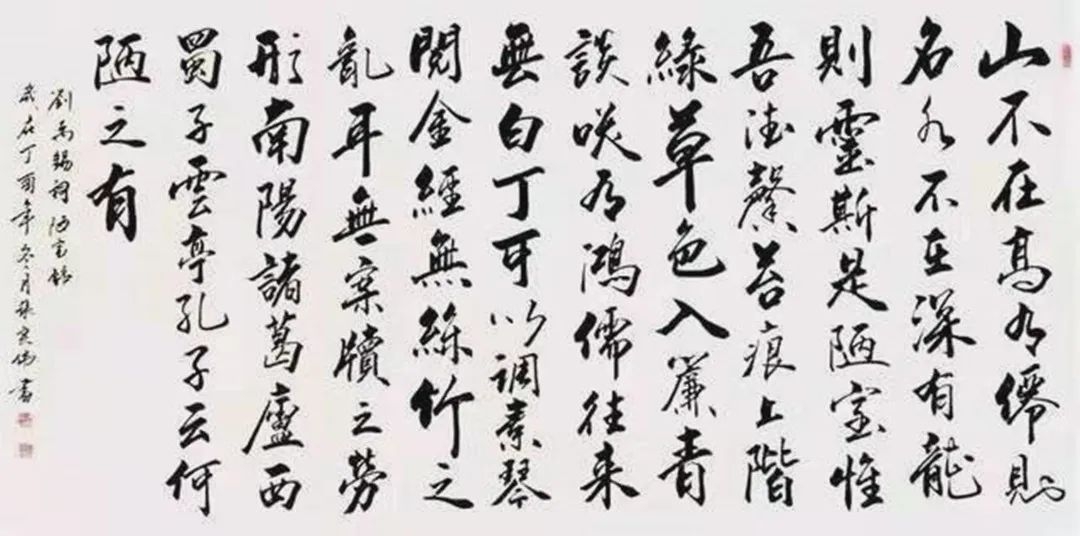 山不在高有僊則
名水不在深有龍
則靈斯是陋室惟
吾德馨苔痕上階
綠草色入簾青
談笑有鴻儒往来
無白丁可以調素琴
閱金經無絲竹之
亂耳無案牘之勞
形南陽諸葛廬西
蜀子雲亭孔子云何
陋之有
劉禹錫詞陋室銘
歲在丁酉年冬月張書